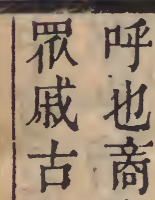 呼也商
眾戚古